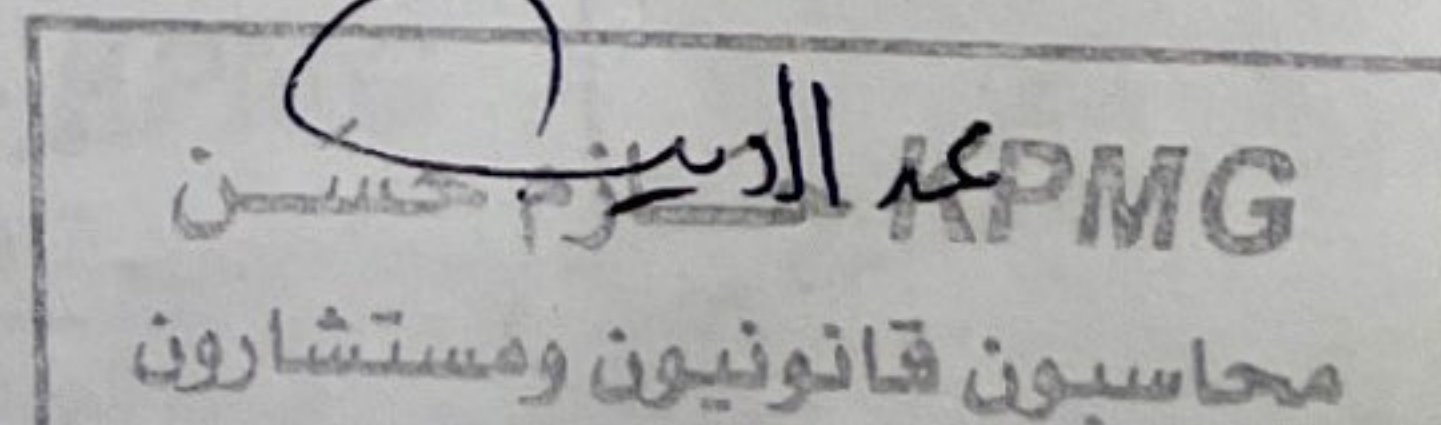 KPMG حازم حسن
محاسبون قانونيون ومستشارون